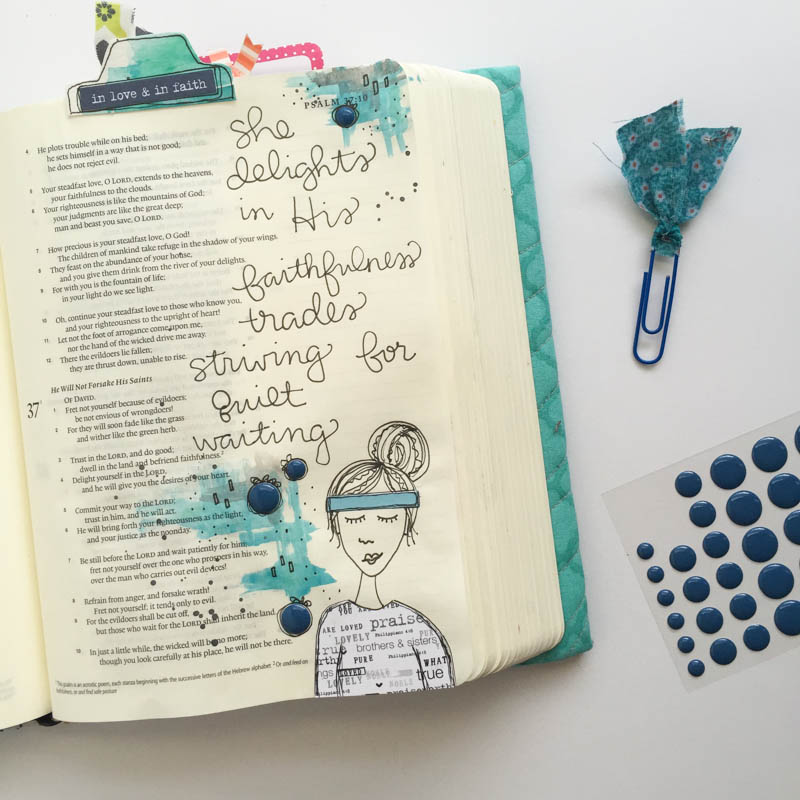 in love & in faith
PSALM 37:10
she
delights
in His
faithfulness
trades
striving for
quilt
waiting
4 He plots trouble while on his bed;
he sets himself in a way that is not good;
he does not reject evil.
5 Your steadfast love, O LORD, extends to the heavens,
your faithfulness to the clouds.
6 Your righteousness is like the mountains of God;
your judgments are like the great deep;
man and beast you save, O LORD.
7 How precious is your steadfast love, O God!
The children of mankind take refuge in the shadow of your wings.
8 They feast on the abundance of your house,
and you give them drink from the river of your delights.
9 For with you is the fountain of life;
in your light do we see light.
10 Oh, continue your steadfast love to those who know you,
and your righteousness to the upright of heart!
11 Let not the foot of arrogance come upon me,
nor the hand of the wicked drive me away.
12 There the evildoers lie fallen;
they are thrust down, unable to rise.
He Will Not Forsake His Saints
37 OF DAVID.
1 Fret not yourself because of evildoers;
be not envious of wrongdoers!
2 For they will soon fade like the grass
and wither like the green herb.
3 Trust in the LORD, and do good;
dwell in the land and befriend faithfulness.2
4 Delight yourself in the LORD,
and he will give you the desires of your heart.
5 Commit your way to the LORD;
trust in him, and he will act.
6 He will bring forth your righteousness as the light,
and your justice as the noonday.
7 Be still before the LORD and wait patiently for him;
fret not yourself over the one who prospers in his way,
over the man who carries out evil devices!
8 Refrain from anger, and forsake wrath!
Fret not yourself; it tends only to evil.
9 For the evildoers shall be cut off,
but those who wait for the LORD shall inherit the land.
10 In just a little while, the wicked will be no more;
though you look carefully at his place, he will not be there.
This psalm is an acrostic poem, each stanza beginning with the successive letters of the Hebrew alphabet 2 Or and feed on
faithfulness, or and find safe pasture
ARE LOVED praise
LOVELY Philippians 4:8
true brothers & sisters
PURE
LOVED
LOVELY NOBLE
WHAT
true
praise